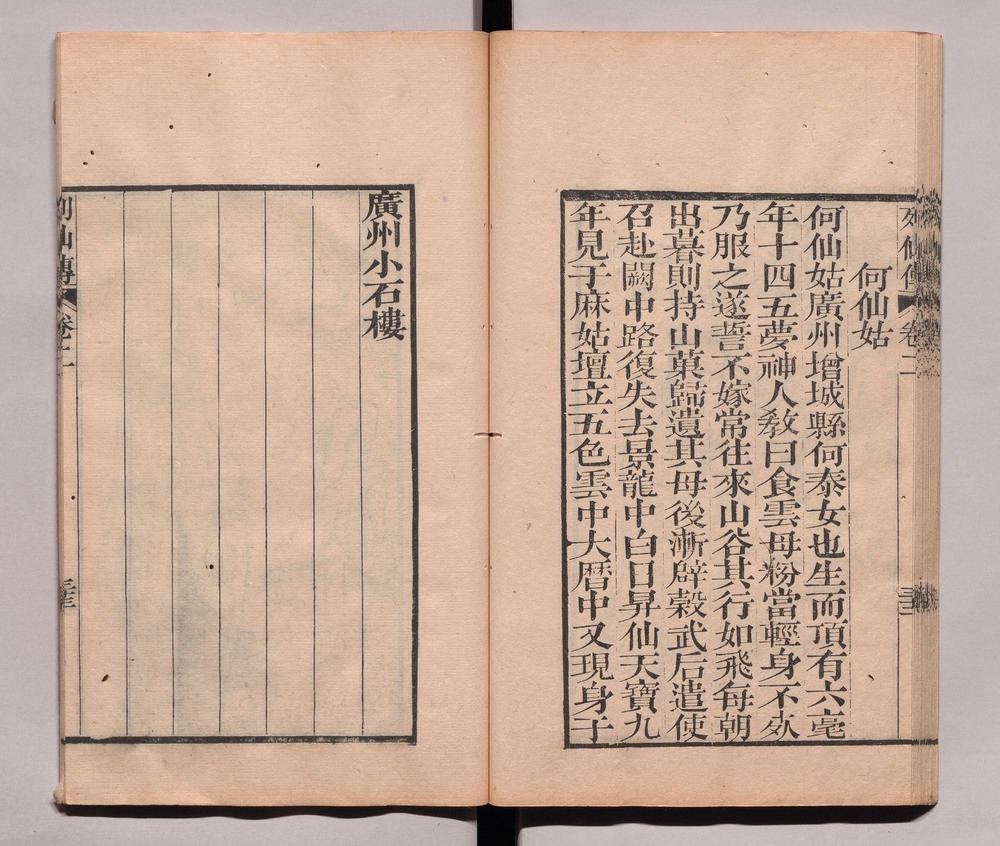 列仙傳 卷二
何仙姑
何仙姑廣州增城縣何泰女也生而頂有六毫
年十四五夢神人教曰食雲母粉當輕身不死
乃服之遂誓不嫁常往來山谷其行如飛每朝
出暮則持山菓歸遺其母後漸辟榖武后遣使
召赴闕中路復失去景龍中白日昇仙天寶九
年見于麻姑壇立五色雲中大曆中又現身于
廣州小石樓
列仙傳 卷二